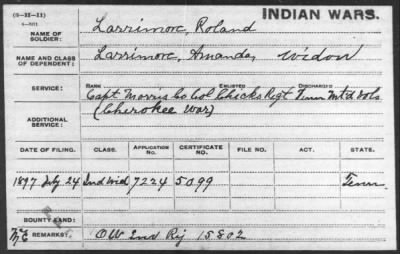 (3-II-II)
INDIAN WARS.
NAME OF SOLDIER: Larrimore, Roland
NAME AND CLASS OF DEPENDENT: Larrimore, Amanda, Widow
SERVICE: RANK ENLISTED DISCHARGED
Capt Morris Co Col Checks Regt Tenn Mt'd Vols
ADDITIONAL SERVICE: (Cherokee War)
DATE OF FILING. CLASS. APPLICATION No. CERTIFICATE No. FILE NO. ACT. STATE.
1897 July 24 Ind Wid 7224 5099 Tenn
BOUNTY LAND:
REMARKS: OW Ind Rej 15802